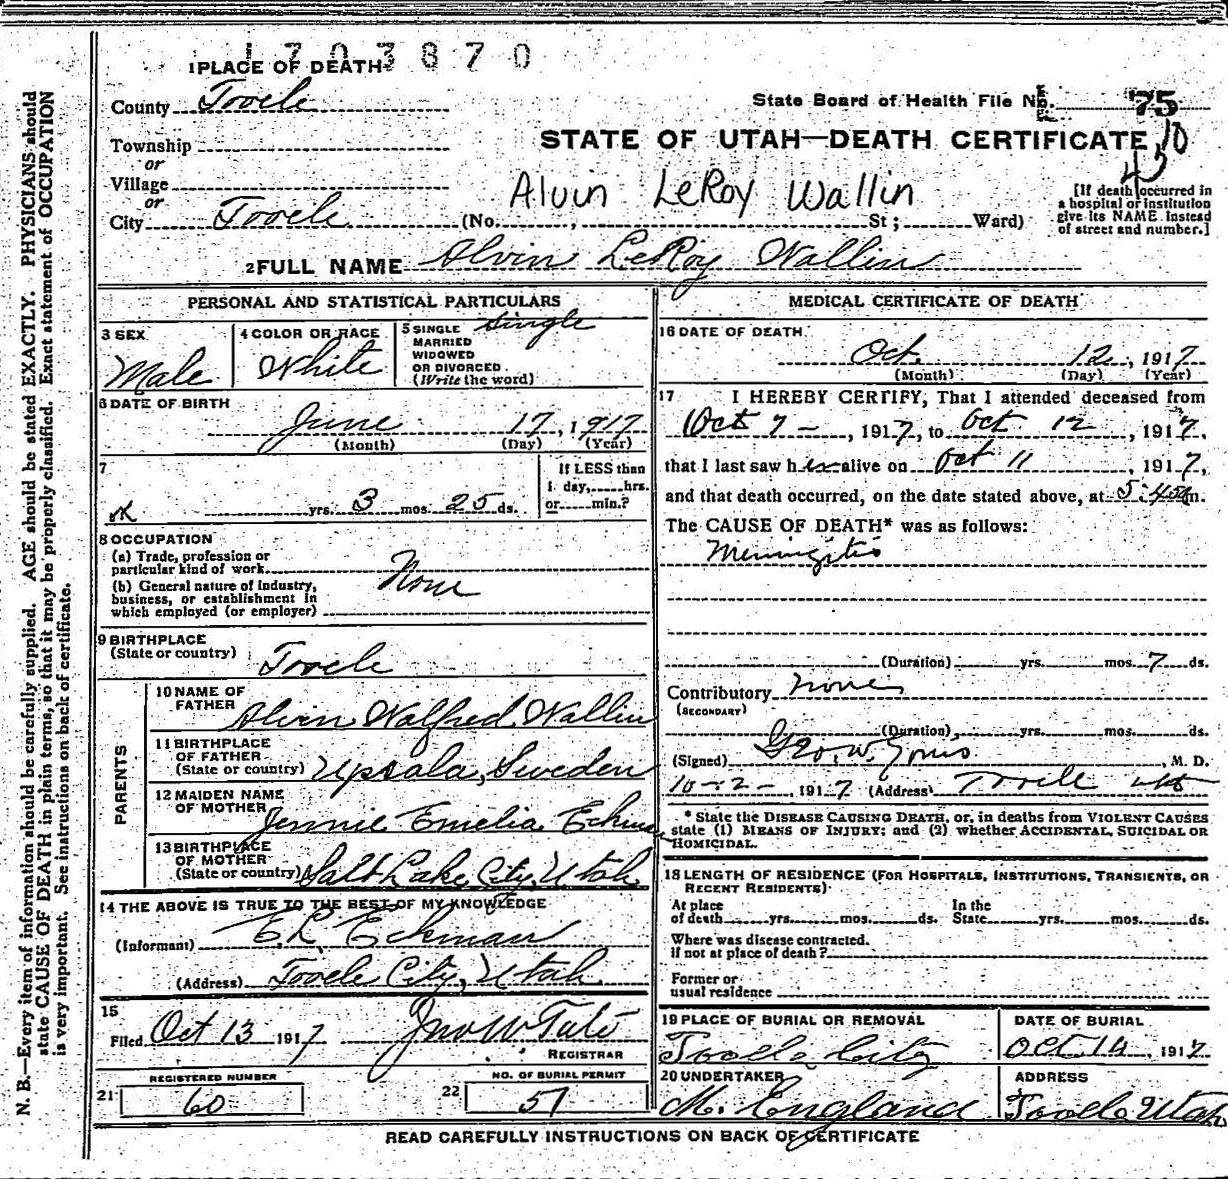 1703870
1 PLACE OF DEATH
County Tooele
State Board of Health File No. 75
Township
STATE OF UTAH—DEATH CERTIFICATE
10
45
or
Village
or
City Tooele (No. , St; Ward)
Alvin LeRoy Wallin
[If death occurred in
a hospital or institution
give its NAME instead
of street and number.]
2 FULL NAME Alvin LeRoy Wallin
PERSONAL AND STATISTICAL PARTICULARS
3 SEX
Male
4 COLOR OR RACE
White
5 SINGLE
MARRIED
WIDOWED
OR DIVORCED
(Write the word)
Single
6 DATE OF BIRTH
June 17, 1917
(Month) (Day) (Year)
7
yrs. 3 mos. 25 ds.
If LESS than
1 day, hrs.
or min.?
8 OCCUPATION
(a) Trade, profession or
particular kind of work
(b) General nature of industry,
business, or establishment in
which employed (or employer)
None
9 BIRTHPLACE
(State or country)
Tooele
PARENTS
10 NAME OF
FATHER
Alvin Walfred Wallin
11 BIRTHPLACE
OF FATHER
(State or country) Upsala, Sweden
12 MAIDEN NAME
OF MOTHER
Jennie Emelia Eckman
13 BIRTHPLACE
OF MOTHER
(State or country) Salt Lake City, Utah
14 THE ABOVE IS TRUE TO THE BEST OF MY KNOWLEDGE
(Informant) E L Eckman
(Address) Tooele City, Utah
15
Filed Oct 13 1917 Jno W Tate
REGISTRAR
REGISTERED NUMBER
21 60
NO. OF BURIAL PERMIT
22 57
MEDICAL CERTIFICATE OF DEATH
16 DATE OF DEATH
Oct 12, 1917
(Month) (Day) (Year)
17 I HEREBY CERTIFY, That I attended deceased from
Oct 7 - , 1917, to Oct 12 , 1917,
that I last saw h alive on Oct 11 , 1917,
and that death occurred, on the date stated above, at m.
The CAUSE OF DEATH* was as follows:
Meningitis
(Duration) yrs. mos. 7 ds.
Contributory none
(SECONDARY)
(Duration) yrs. mos. ds.
(Signed) Geo. W. , M. D.
10-12-, 1917 (Address) Tooele
* State the DISEASE CAUSING DEATH, or, in deaths from VIOLENT CAUSES
state (1) MEANS OF INJURY; and (2) whether ACCIDENTAL, SUICIDAL OR
HOMICIDAL.
18 LENGTH OF RESIDENCE (FOR HOSPITALS, INSTITUTIONS, TRANSIENTS, OR
RECENT RESIDENTS).
At place
of death yrs. mos. ds.
In the
State yrs. mos. ds.
Where was disease contracted.
If not at place of death?
Former or
usual residence
19 PLACE OF BURIAL OR REMOVAL
Tooele City
DATE OF BURIAL
Oct 14, 1917
20 UNDERTAKER
M. England
ADDRESS
Tooele Utah
READ CAREFULLY INSTRUCTIONS ON BACK OF CERTIFICATE
N. B.—Every item of information should be carefully supplied. AGE should be stated EXACTLY. PHYSICIANS should
state CAUSE OF DEATH in plain terms, so that it may be properly classified. Exact statement of OCCUPATION
is very important. See instructions on back of certificate.